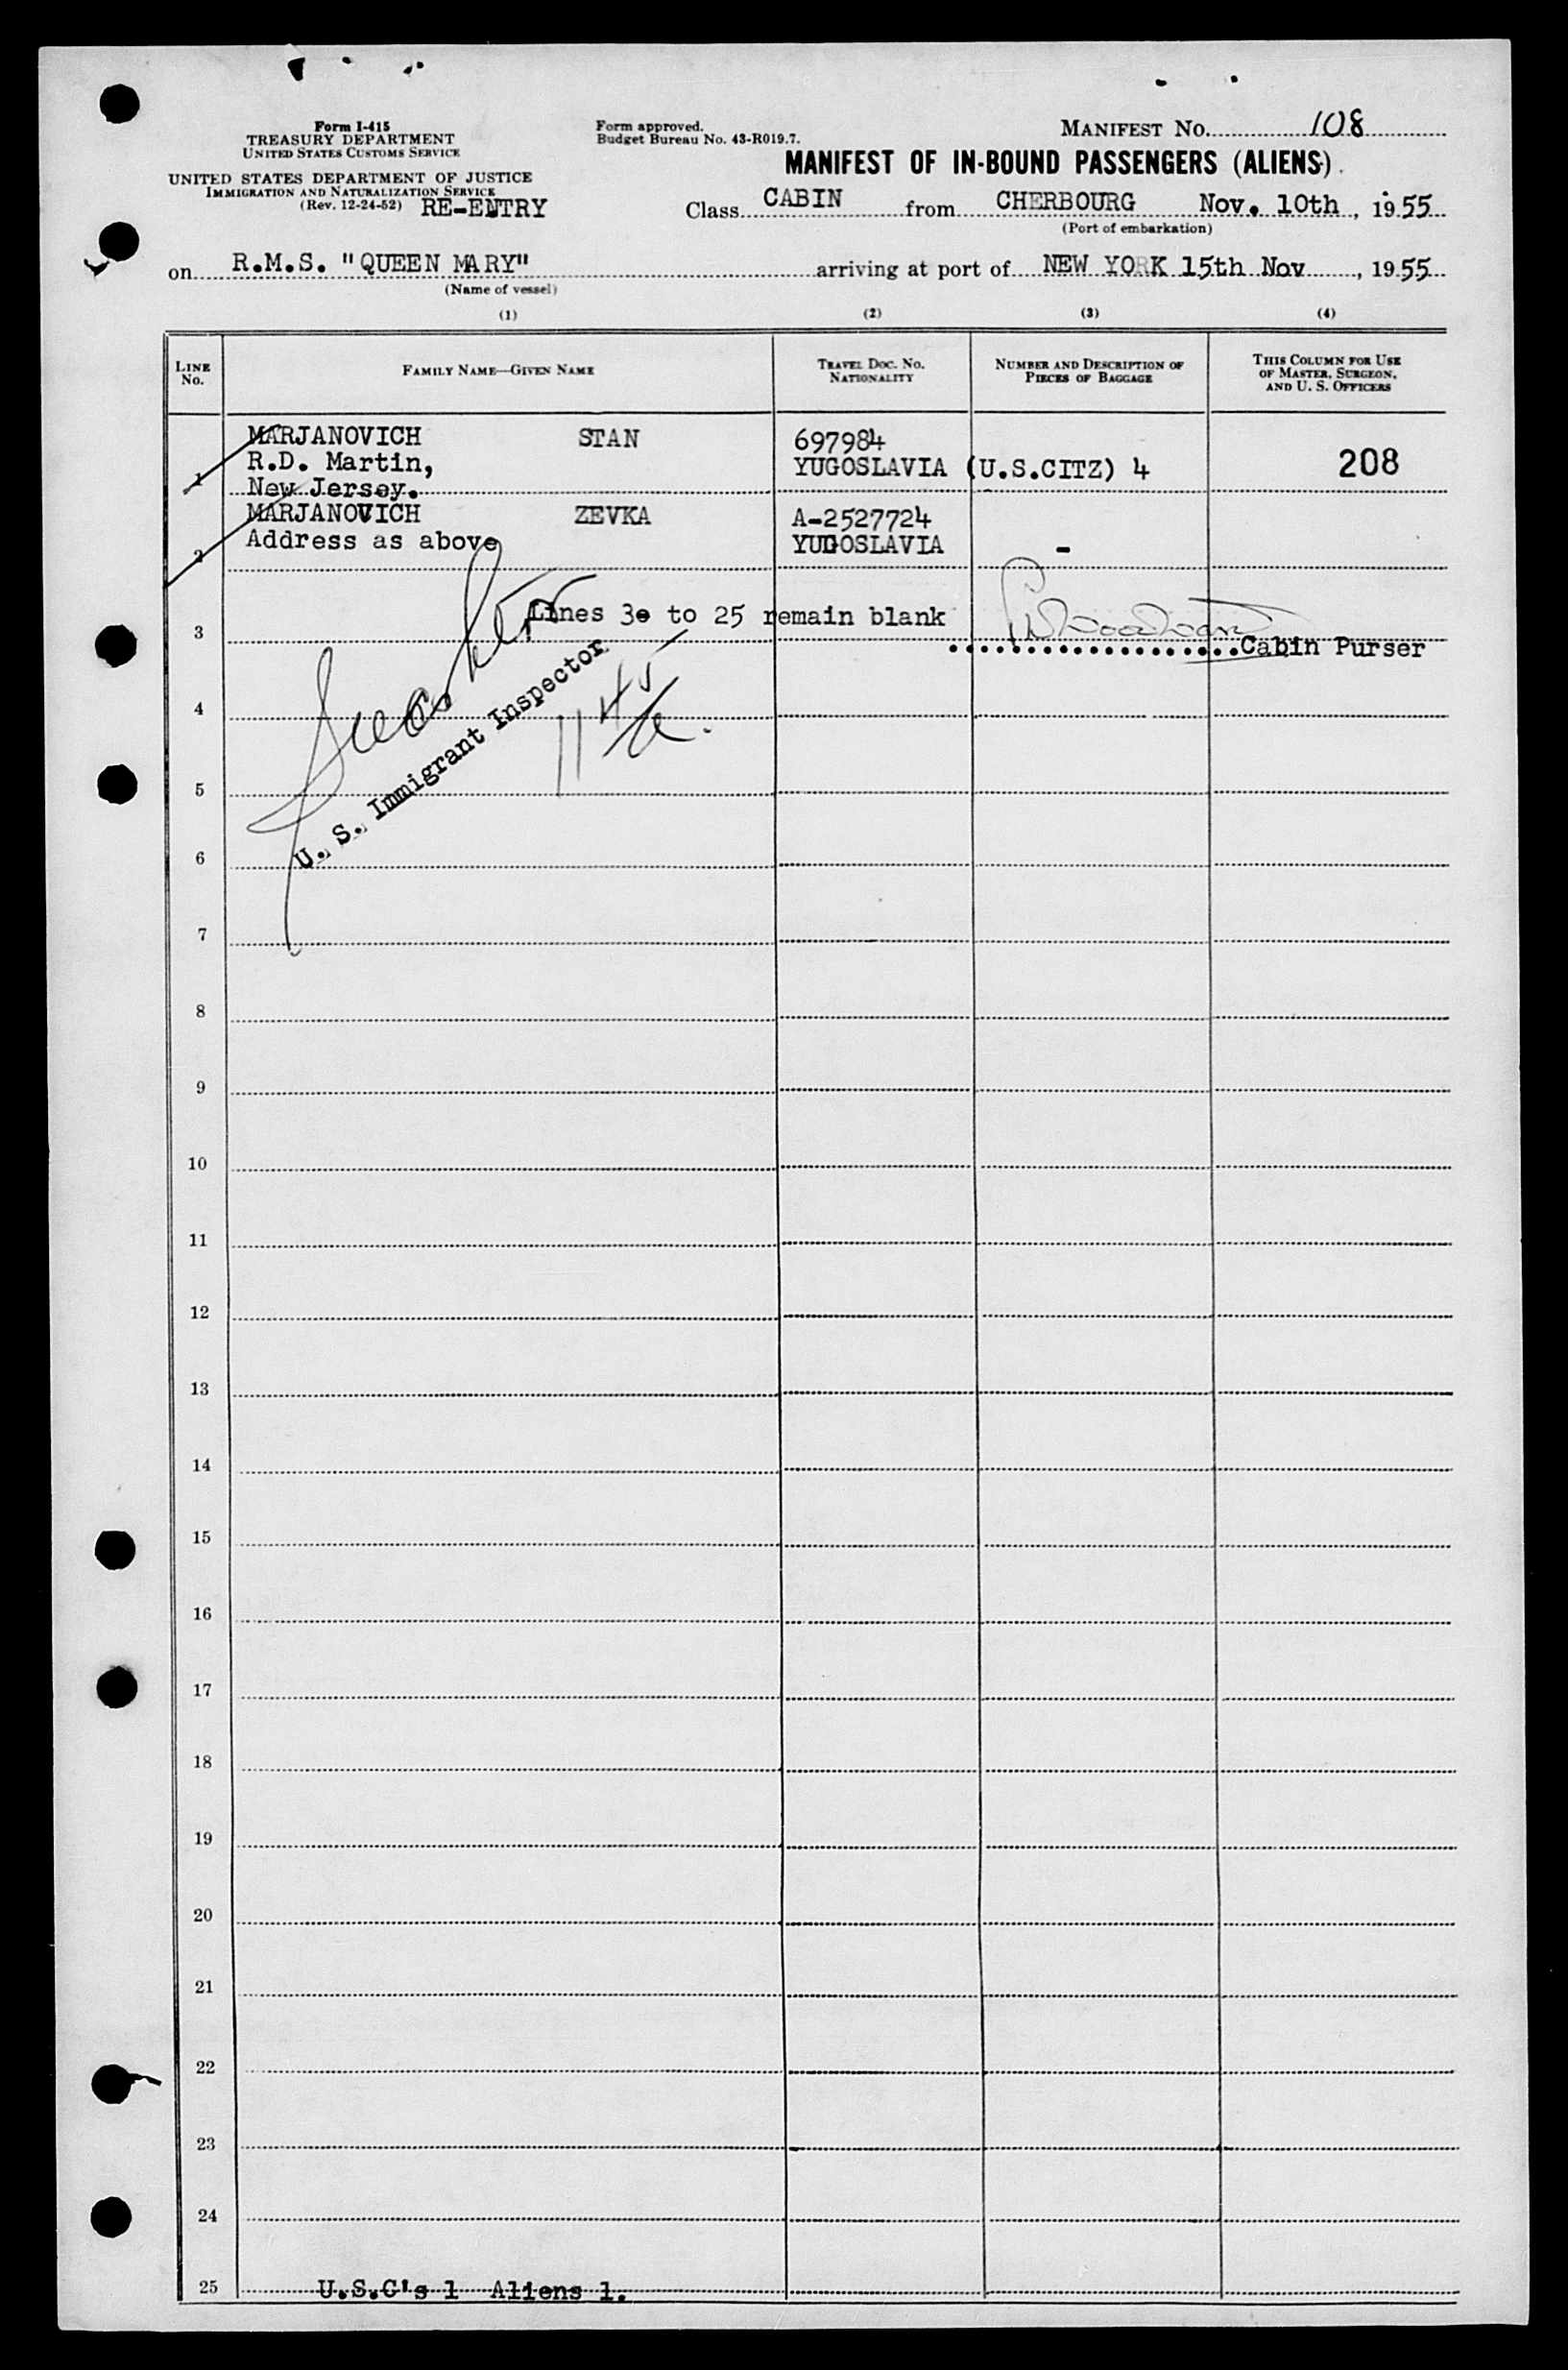 Form I-415
TREASURY DEPARTMENT
UNITED STATES CUSTOMS SERVICE
UNITED STATES DEPARTMENT OF JUSTICE
IMMIGRATION AND NATURALIZATION SERVICE
(Rev. 12-24-52) RE-ENTRY
Form approved.
Budget Bureau No. 43-R019.7.
MANIFEST NO. 108
MANIFEST OF IN-BOUND PASSENGERS (ALIENS)
Class CABIN from CHERBOURG Nov. 10th, 1955
(Port of embarkation)
on R.M.S. "QUEEN MARY" arriving at port of NEW YORK 15th Nov, 1955
(Name of vessel)
(1) (2) (3) (4)
LINE No. FAMILY NAME—GIVEN NAME TRAVEL DOC. NO. NATIONALITY NUMBER AND DESCRIPTION OF PIECES OF BAGGAGE THIS COLUMN FOR USE OF MASTER, SURGEON, AND U. S. OFFICERS
MARJANOVICH STAN 697984
1 R.D. Martin, YUGOSLAVIA (U.S.CITZ) 4 208
New Jersey.
MARJANOVICH ZEVKA A-2527724
2 Address as above YUGOSLAVIA -
Lines 3 to 25 remain blank
3 Cabin Purser
U. S. Immigrant Inspector
4
5
6
7
8
9
10
11
12
13
14
15
16
17
18
19
20
21
22
23
24
25 U.S.C's 1 Aliens 1.